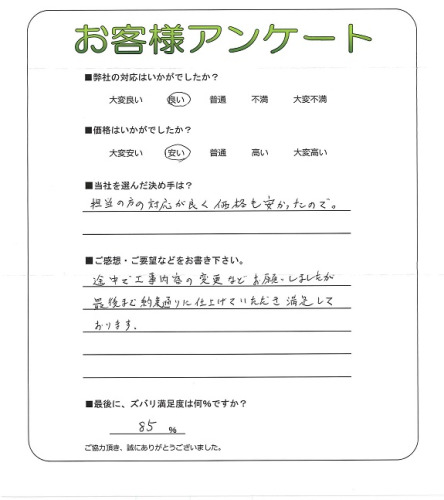 お客様アンケート
■弊社の対応はいかがでしたか？
大変良い 良い 普通 不満 大変不満
■価格はいかがでしたか？
大変安い 安い 普通 高い 大変高い
■当社を選んだ決め手は？
担当の方の対応が良く価格も安かったので。
■ご感想・ご要望などをお書き下さい。
途中で工事内容の変更などお願いしましたが
最後まで約束通りに仕上げていただき満足して
おります。
■最後に、ズバリ満足度は何%ですか？
85 %
ご協力頂き、誠にありがとうございました。